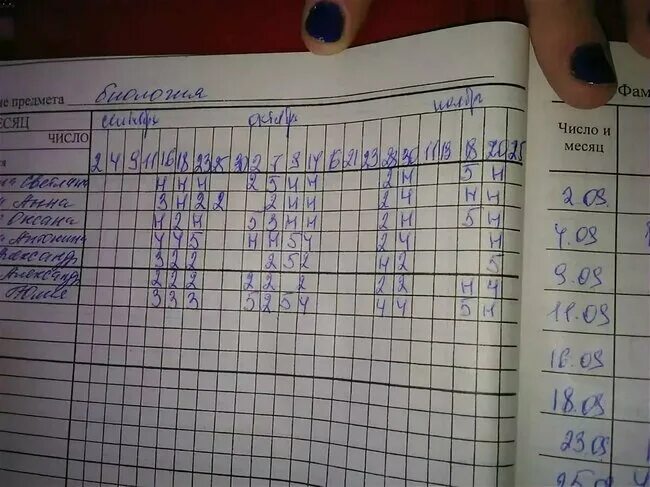 ие предмета биология
Фам
ЕСЯЦ сентябрь октябрь ноябрь
ЧИСЛО
Число и
месяц
2 4 9 11 16 18 23 25 30 2 7 9 14 16 21 23 28 30 11 13 18 20 25
Светлана н н н 2 5 н н 2 н 5 н
Анна 3 н 2 2 2 н н 2 4 н н
Оксана н 2 н 5 3 н н 2 н 5 н
Антонина 4 4 5 н н 5 4 2 4 н
лександр 3 2 2 2 5 2 н 2 5
Александр 2 2 2 2 2 2 2 2 н 4
Юлия 3 3 3 5 2 5 4 4 4 5 н
2.09
4.09
9.09
11.09
16.09
18.09
23.09
25.09